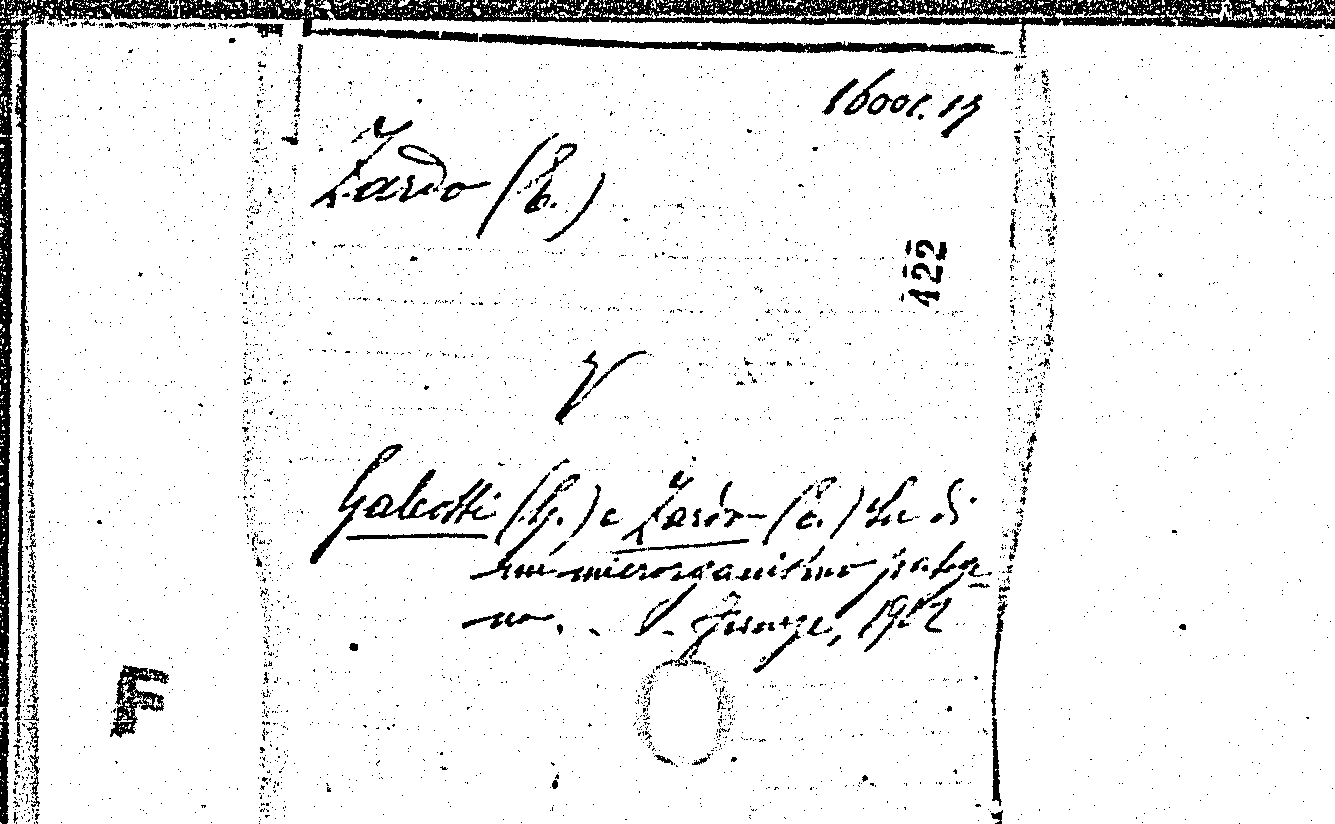 16001.17
Zardo (E.)
422
V
Galeotti (G.) e Zardo (E.) Su di
un microrganismo patoge
no. . . - Firenze, 1902
F